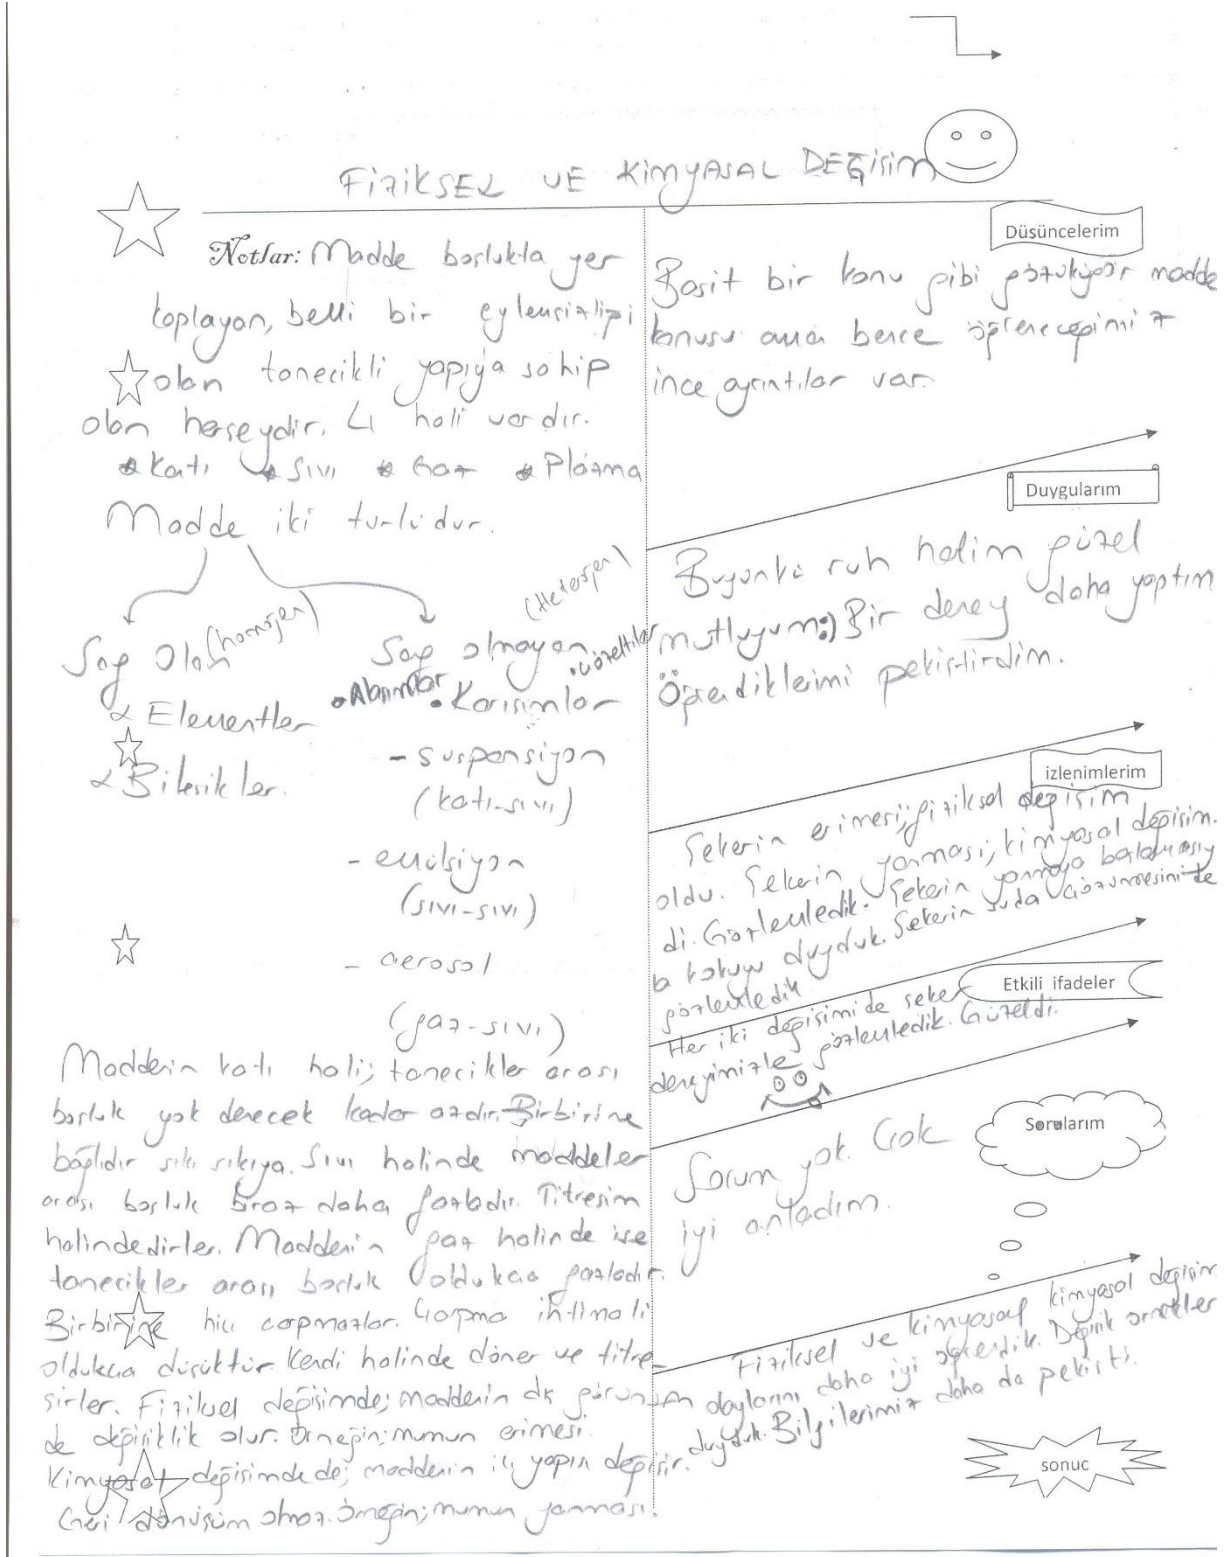 FİZİKSEL VE KİMYASAL DEĞİŞİM
Notlar: Madde boşlukta yer
kaplayan, belli bir eylemsizliği
olan tanecikli yapıya sahip
olan herşeydir. 4 hali vardır.
* Katı * Sıvı * Gaz * Plazma
Madde iki türlüdür.
Saf Olan (homojen)
Elementler
Bileşikler.
Saf olmayan (Heterojen)
• Alaşımlar • Karışımlar • Çözeltiler
- suspansiyon
(katı-sıvı)
- emülsiyon
(sıvı-sıvı)
- aerosol
(gaz-sıvı)
Maddenin katı hali; tanecikler arası
boşluk yok denecek kadar azdır. Birbirine
bağlıdır sıkı sıkıya. Sıvı halinde maddeler
arası boşluk biraz daha fazladır. Titreşim
halindedirler. Maddenin gaz halinde ise
tanecikler arası boşluk oldukça fazladır.
Birbirine hiç çarpmazlar. Çarpma ihtimali
oldukça düşüktür. Kendi halinde döner ve titre-
şirler. Fiziksel değişimde; maddenin dış görünüm
de değişiklik olur. Örneğin; mumun erimesi.
Kimyasal değişimde de; maddenin iç yapısı değişir.
Geri dönüşüm olmaz. Örneğin; mumun yanması.
Düşüncelerim
Basit bir konu gibi gözüküyor madde
konusu ama bence öğreneceğimiz
ince ayrıntılar var.
Duygularım
Bugünkü ruh halim güzel
mutluyum:) Bir deney daha yaptım
Öğrendiklerimi pekiştirdim.
izlenimlerim
Şekerin erimesi; fiziksel değişim
oldu. Şekerin yanması; kimyasal değişim.
di. Gözlemledik. Şekerin yanmaya başlamasıy
la kokuyu duyduk. Şekerin suda çözünmesini de
gözlemledik
Etkili ifadeler
Her iki değişimi de şeker
deneyimizle gözlemledik. Güzeldi.
Sorularım
Sorum yok. Çok
iyi anladım.
Fiziksel ve kimyasal kimyasal değişim
olaylarını daha iyi öğrendik. Değişik örnekler
duyduk. Bilgilerimiz daha da pekişti.
sonuc